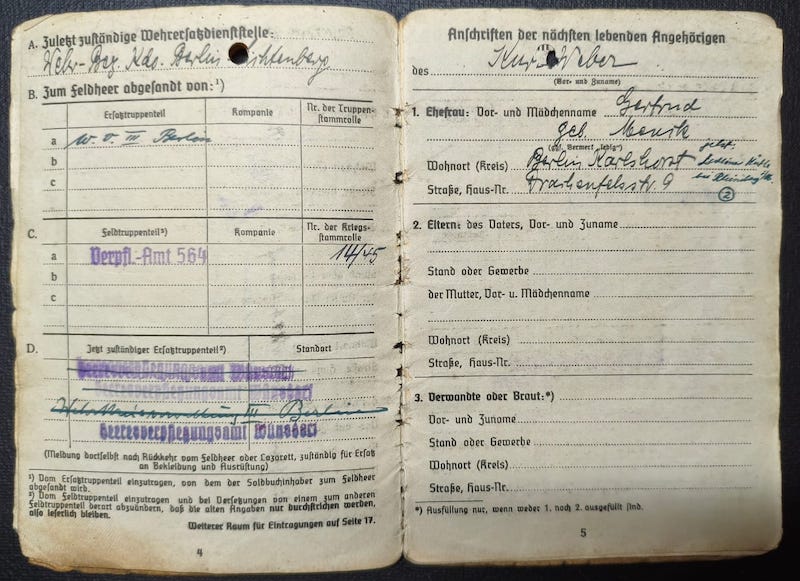 A. Zuletzt zuständige Wehrersatzdienststelle:
Wehr-Bez. Kdo. Berlin Lichtenberg
B. Zum Feldheer abgesandt von:¹)
Ersatztruppenteil
Kompanie
Nr. der Truppenstammrolle
a W. V. III Berlin
b
c
C. Feldtruppenteil²)
Kompanie
Nr. der Kriegsstammrolle
a Verpfl.-Amt 564 14/45
b
c
D. Jetzt zuständiger Ersatztruppenteil²)
Standort
Heeresverpflegungsamt Wünsdorf
Heeresverpflegungsamt Wünsdorf
Wehrkreisverwaltung III Berlin
Heeresverpflegungsamt Wünsdorf
(Meldung dortselbst nach Rückkehr vom Feldheer oder Lazarett, zuständig für Ersatz
an Bekleidung und Ausrüstung)
¹) Vom Ersatztruppenteil einzutragen, von dem der Soldbuchinhaber zum Feldheer
abgesandt wird.
²) Vom Feldtruppenteil einzutragen und bei Versetzungen von einem zum anderen
Feldtruppenteil derart abzuändern, daß die alten Angaben nur durchstrichen werden,
also leserlich bleiben.
Weiterer Raum für Eintragungen auf Seite 17.
4
Anschriften der nächsten lebenden Angehörigen
des Kurt Weber
(Vor- und Zuname)
1. Ehefrau: Vor- und Mädchenname Gertrud
geb. Menik
(ggf. Vermerk „ledig“)
Wohnort (Kreis) Berlin Karlshorst jetzt:
Straße, Haus-Nr. Drachenfelsstr. 9
②
2. Eltern: des Vaters, Vor- und Zuname
Stand oder Gewerbe
der Mutter, Vor- u. Mädchenname
Wohnort (Kreis)
Straße, Haus-Nr.
3. Verwandte oder Braut:*)
Vor- und Zuname
Stand oder Gewerbe
Wohnort (Kreis)
Straße, Haus-Nr.
*) Ausfüllung nur, wenn weder 1. noch 2. ausgefüllt sind.
5